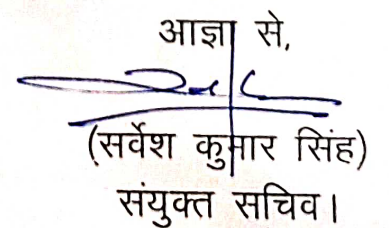 आज्ञा से,
(सर्वेश कुमार सिंह)
संयुक्त सचिव।